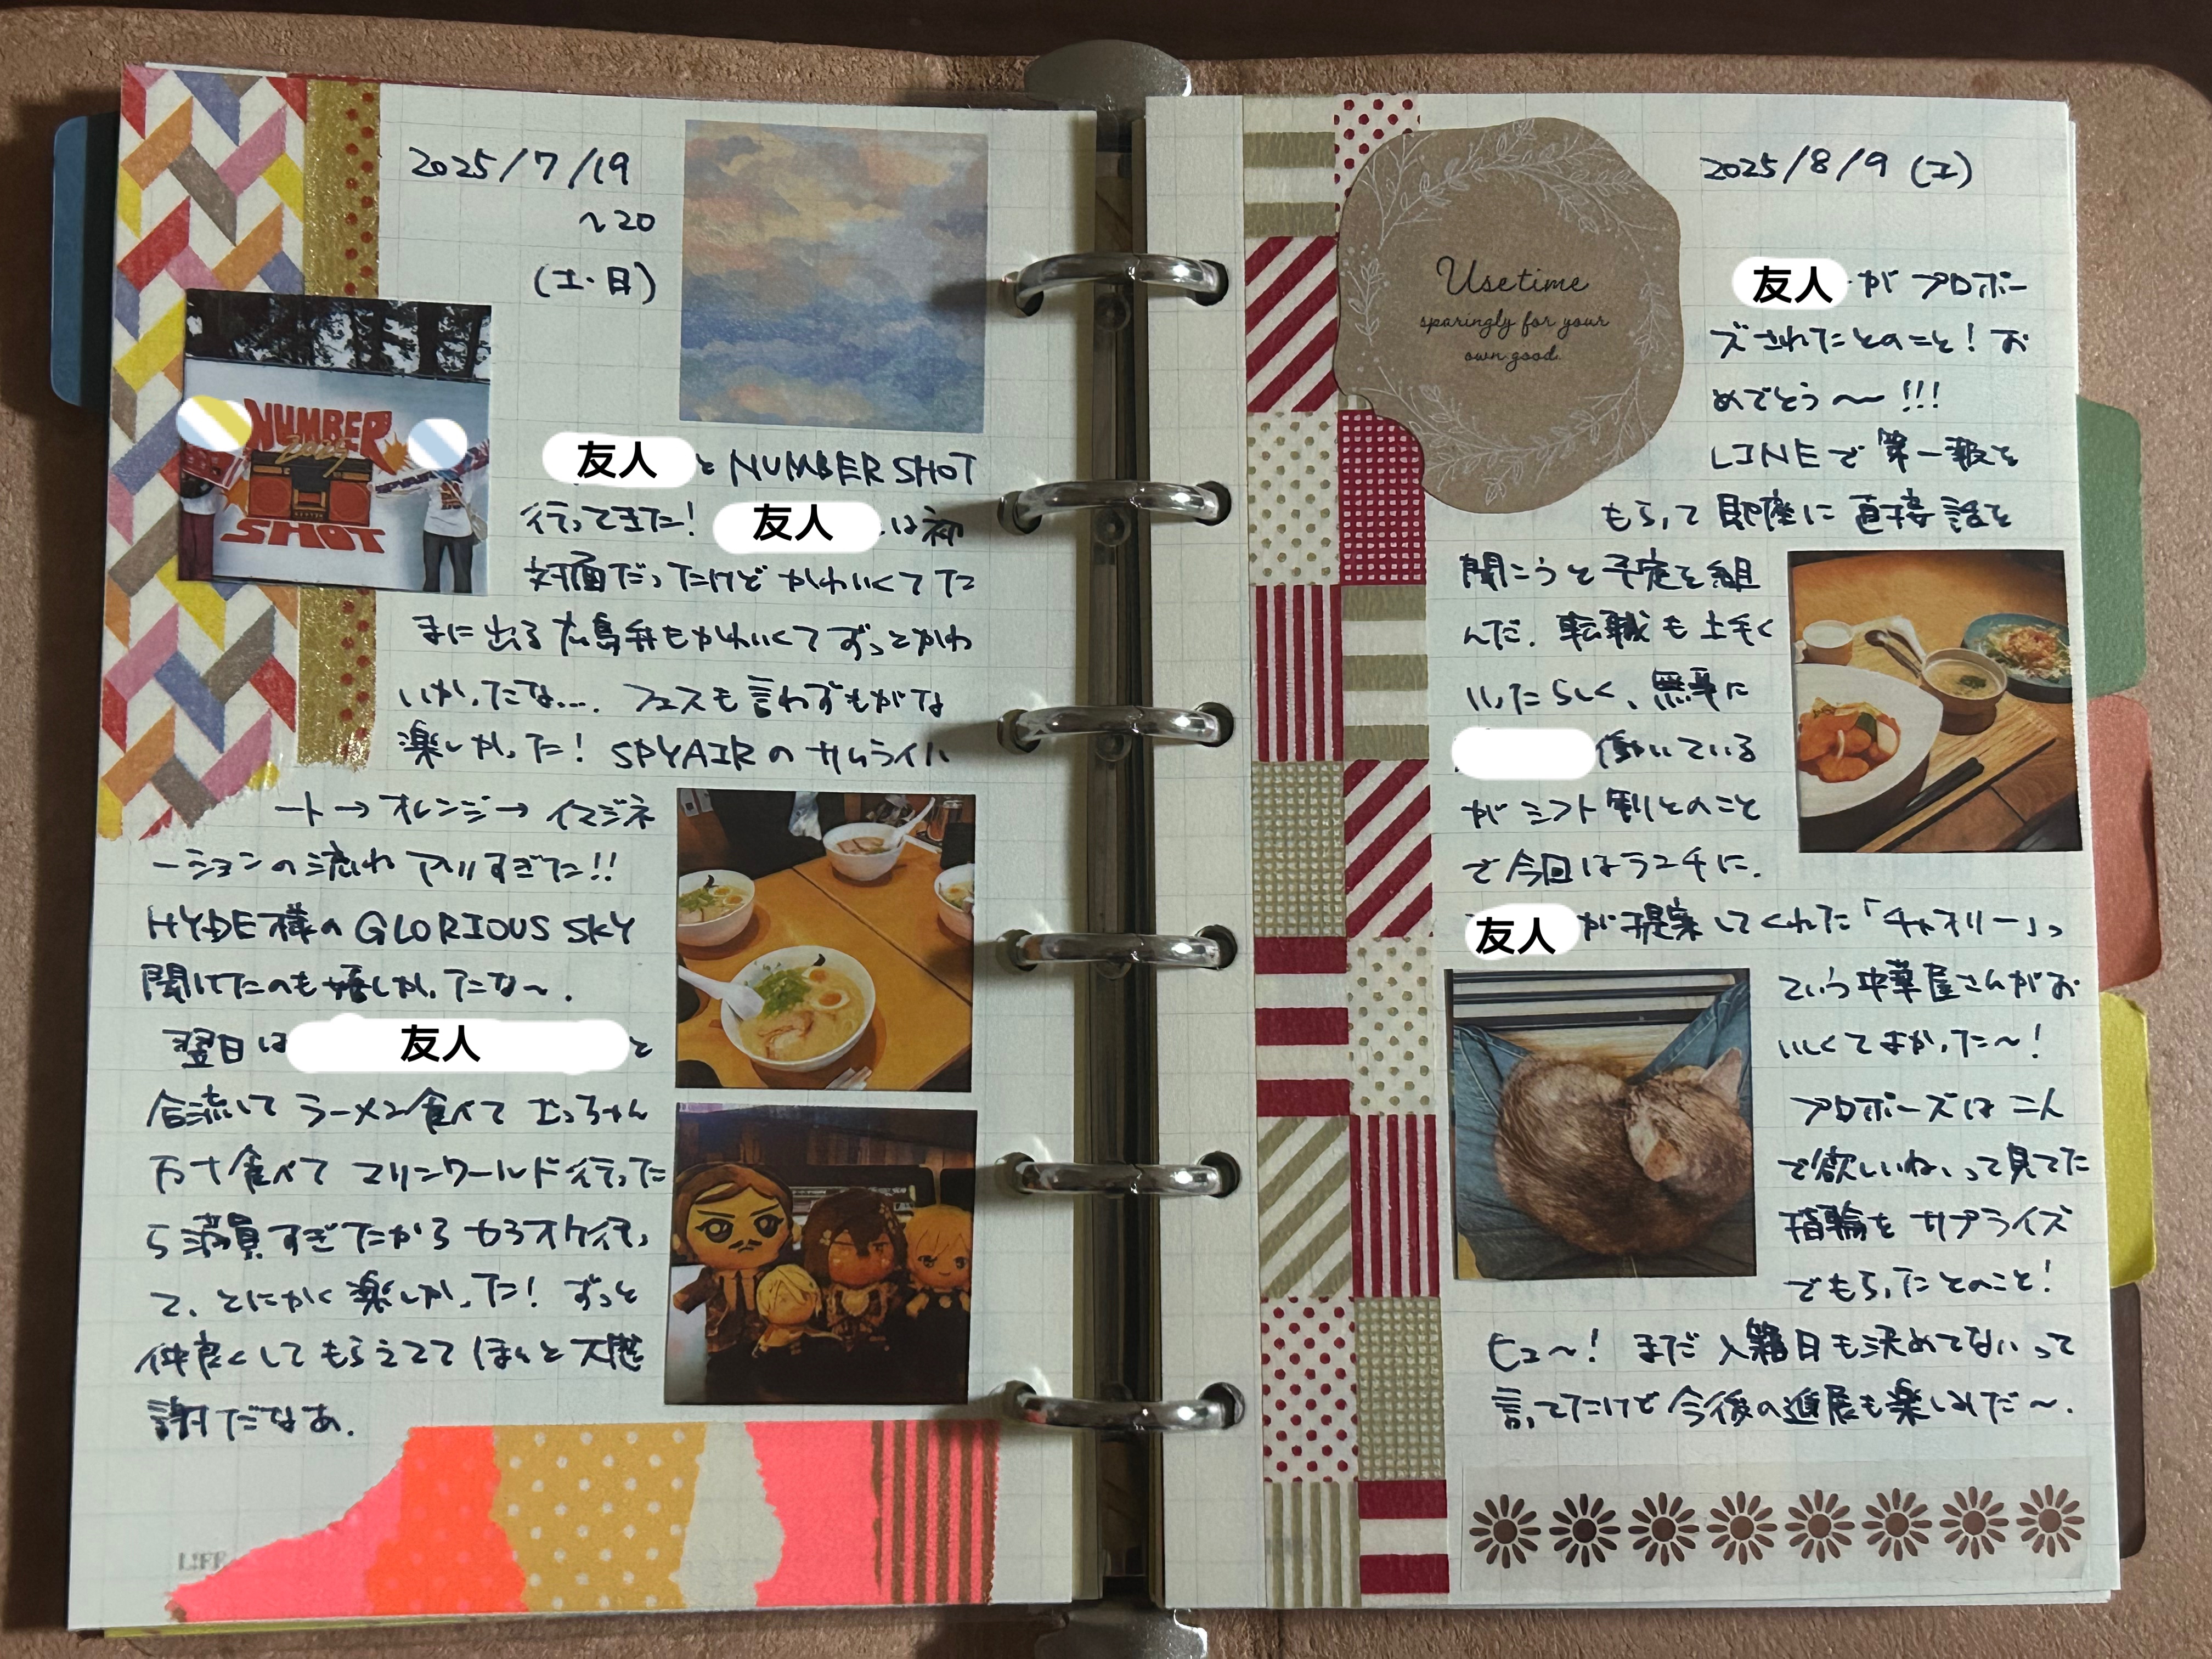 2025/7/19
~20
(土・日)
NUMBER
2025
SHOT
友人と NUMBER SHOT
行ってきた! 友人は初
対面だったけど かわいくて た
まに出る 広島弁もかわいくて ずっとかわ
いかったな.... フェスも 言わずもがな
楽しかった! SPYAIR の サムライハ
ート→オレンジ→イマジネ
ーションの流れ アツすぎた!!
HYDE様の GLORIOUS SKY
聞けたのも嬉しかったな~.
翌日は 友人 と
合流して ラーメン食べて むっちゃん
万十食べて マリンワールド行った
ら満員すぎたから カラオケ行っ
て、とにかく楽しかった! ずっと
仲良くしてもらえてて ほんと大感
謝だなあ.
LIFE
Use time
sparingly for your
own good.
2025/8/9 (土)
友人が プロポー
ズされたとのこと! お
めでとう~!!!
LINEで 第一報を
もらって 即座に 直接 話を
聞こうと 予定を組
んだ. 転職も上手く
いったらしく、無事に
働いている
が シフト制とのこと
で今回はランチに.
友人が提案してくれた「チャオリー」っ
ていう中華屋さんがお
いしくてよかった~!
プロポーズは こん
で欲しいね、って見てた
指輪を サプライズ
でもらったとのこと!
ヒュ~! まだ 入籍日も決めてないって
言ってたけど 今後の進展も楽しみだ~.